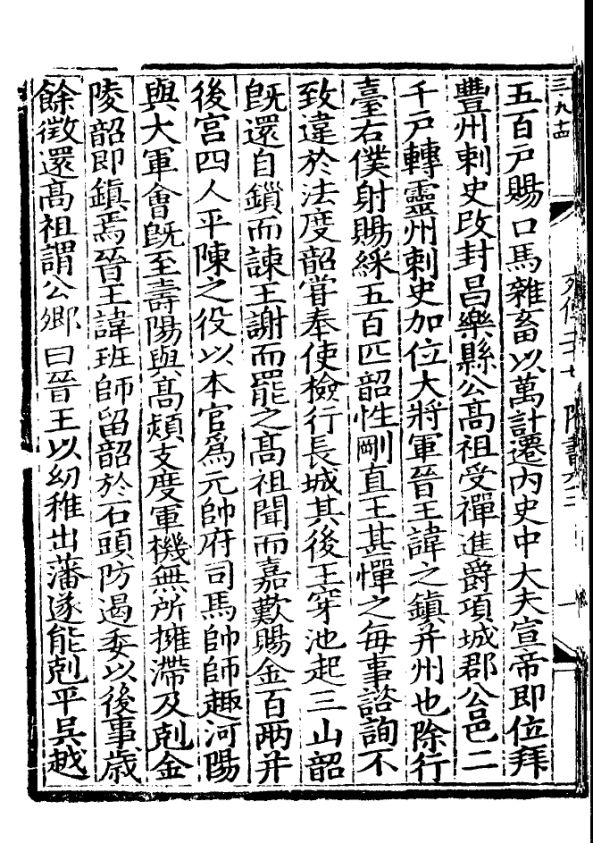 三九十四
列傳二十七 隋書六十二 一
五百戸賜口馬雜畜以萬計遷内史中大夫宣帝即位拜
豐州刺史改封昌樂縣公髙祖受禪進爵項城郡公邑二
千戸轉靈州刺史加位大將軍晉王諱之鎮并州也除行
臺右僕射賜綵五百匹韶性剛直王甚憚之每事諮詢不
致違於法度韶甞奉使檢行長城其後王穿池起三山韶
旣還自鎖而諫王謝而罷之髙祖聞而嘉歎賜金百兩并
後宫四人平陳之役以本官爲元帥府司馬帥師趣河陽
與大軍會旣至壽陽與髙熲支度軍機無所擁滯及剋金
陵韶即鎮焉晉王諱班師留韶於石頭防遏委以後事歳
餘徵還髙祖謂公卿曰晉王以幼稚出藩遂能剋平吳越